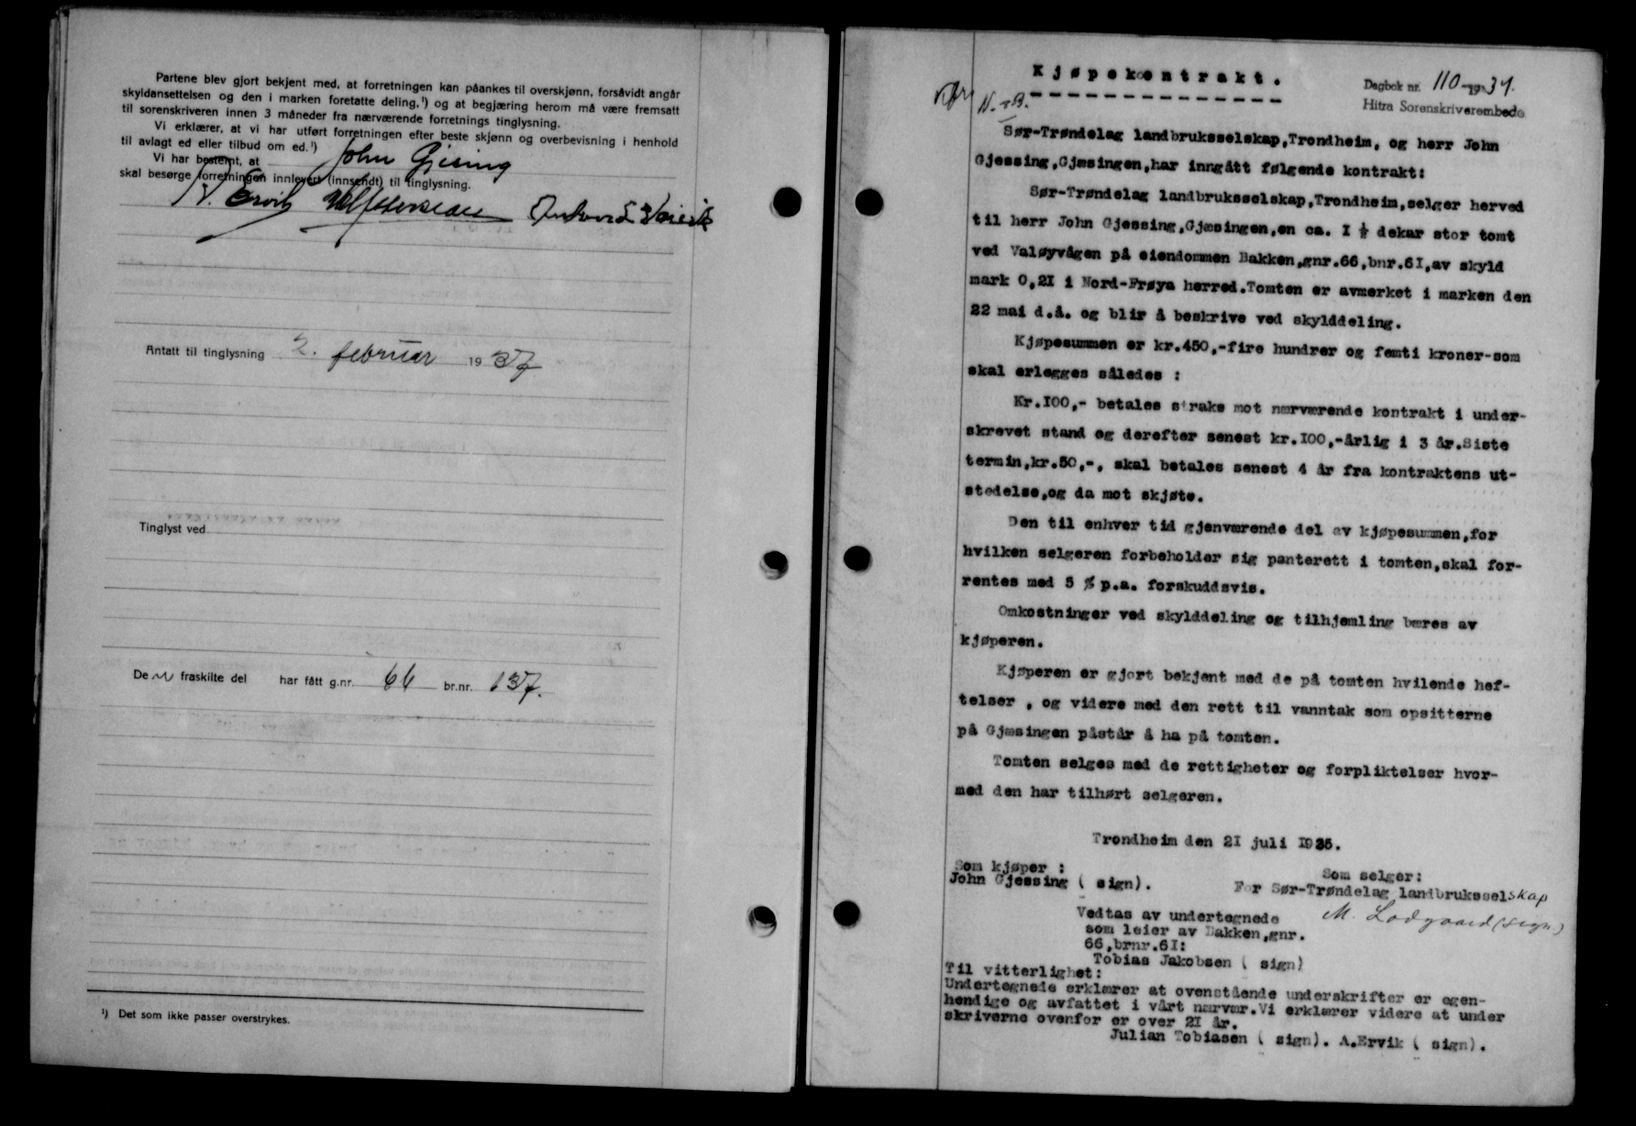 Partene blev gjort bekjent med, at forretningen kan påankes til overskjønn, forsåvidt angår
skyldansettelsen og den i marken foretatte deling,¹) og at begjæring herom må være fremsatt
til sorenskriveren innen 3 måneder fra nærværende forretnings tinglysning.
Vi erklærer, at vi har utført forretningen efter beste skjønn og overbevisning i henhold
til avlagt ed eller tilbud om ed.¹)
Vi har bestemt, at John Gjesing
skal besørge forretningen innlevert (innsendt) til tinglysning.
N. Ervik
Antatt til tinglysning 2. februar 1937
Tinglyst ved
De n fraskilte del har fått g.nr. 66 br.nr. 137.
¹) Det som ikke passer overstrykes.
Kjøpekontrakt.
Dagbok nr. 110 - 1937.
Hitra Sorenskriverembede
Sør-Trøndelag landbruksselskap,Trondheim, og herr John
Gjessing,Gjæsingen,har inngått følgende kontrakt:
Sør-Trøndelag landbruksselskap,Trondheim,selger herved
til herr John Gjessing,Gjæsingen,en ca. I ½ dekar stor tomt
ved Valøyvågen på eiendommen Bakken,gnr.66,bnr.6I,av skyld
mark 0,2I i Nord-Frøya herred.Tomten er avmerket i marken den
22 mai d.å. og blir å beskrive ved skylddeling.
Kjøpesummen er kr.450,-fire hundrer og femti kroner-som
skal erlegges således :
Kr.I00,- betales straks mot nærværende kontrakt i under-
skrevet stand og derefter senest kr.I00,-årlig i 3 år.Siste
termin,kr.50,-, skal betales senest 4 år fra kontraktens ut-
stedelse,og da mot skjøte.
Den til enhver tid gjenværende del av kjøpesummen,for
hvilken selgeren forbeholder sig panterett i tomten,skal for-
rentes med 5 % p.a. forskuddsvis.
Omkostninger ved skylddeling og tilhjemling bæres av
kjøperen.
Kjøperen er gjort bekjent med de på tomten hvilende hef-
telser , og videre med den rett til vanntak som opsitterne
på Gjæsingen påstår å ha på tomten.
Tomten selges med de rettigheter og forpliktelser hvor-
med den har tilhørt selgeren.
Trondheim den 2I juli I935.
Som kjøper :
John Gjessing ( sign).
Som selger:
For Sør-Trøndelag landbruksselskap
M. Lodgaard (sign.)
Vedtas av undertegnede
som leier av Bakken,gnr.
66,brnr.6I:
Tobias Jakobsen ( sign)
Til vitterlighet:
Undertegnede erklærer at ovenstående underskrifter er egen-
hendige og avfattet i vårt nærvær.Vi erklærer videre at under
skriverne ovenfor er over 2I år.
Julian Tobiasen ( sign). A.Ervik ( sign).